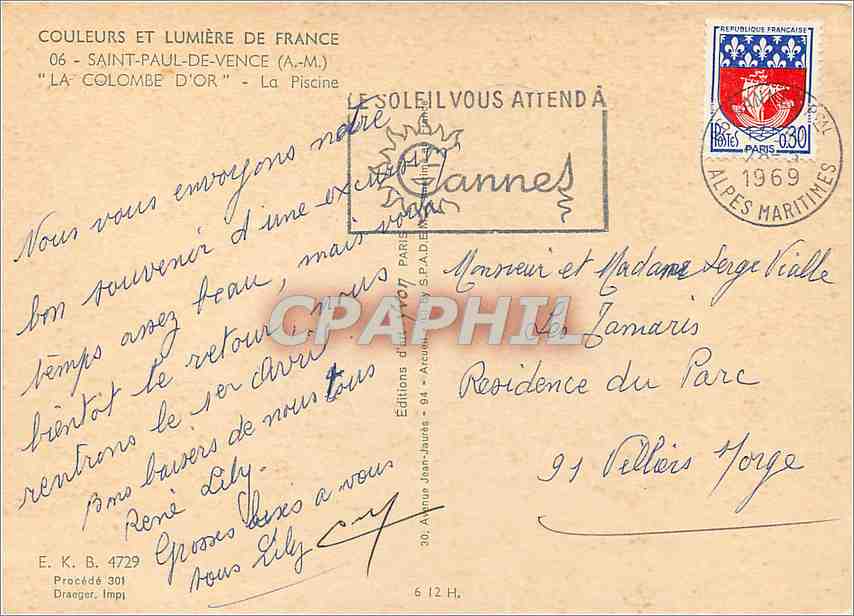 COULEURS ET LUMIÈRE DE FRANCE
06 - SAINT-PAUL-DE-VENCE (A.-M.)
"LA COLOMBE D'OR" - La Piscine
LE SOLEIL VOUS ATTEND À
Cannes
REPUBLIQUE FRANÇAISE
POSTES 0.30
PARIS
1969
ALPES MARITIMES
Nous vous envoyons notre
bon souvenir d'une excursion,
temps assez beau, mais voilà
bientôt le retour, nous
rentrons le 1er avril
Bons baisers de nous tous
René Lily.
Grosses bises a vous
tous Lily
Monsieur et Madame Serge Vialle
Les Tamaris
Residence du Parc
91 Villiers Morge
Editions d'art
PARIS
30, Avenue Jean-Jaurès - 94 - Arcueil
by S.P.A.D.E.M.
CPAPHIL
E. K. B. 4729
Procédé 301
Draeger, Imp.
6 12 H.